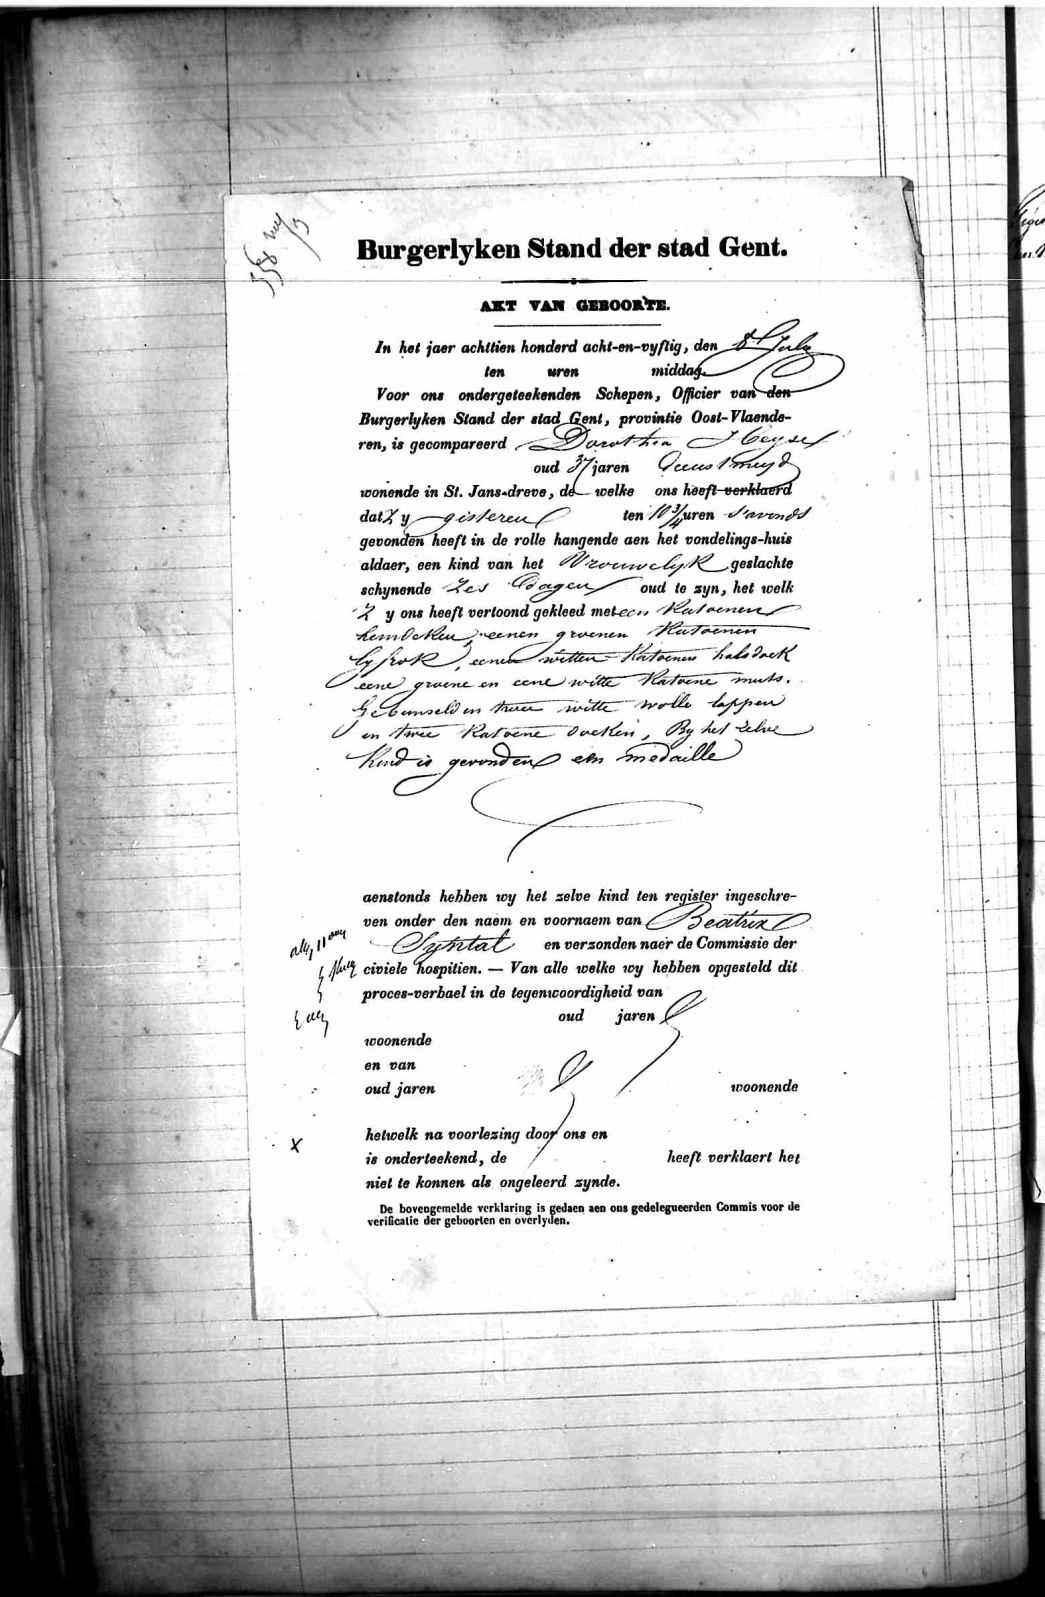 Burgerlyken Stand der stad Gent.
AKT VAN GEBOORTE.
In het jaer achttien honderd acht-en-vyftig, den 8 July
ten uren middag.
Voor ons ondergeteekenden Schepen, Officier van den
Burgerlyken Stand der stad Gent, provintie Oost-Vlaende-
ren, is gecompareerd Dorothea
oud 37 jaren
wonende in St. Jans-dreve, de welke ons heeft verklaerd
dat Zy gisteren ten 10 3/4 uren s'avonds
gevonden heeft in de rolle hangende aen het vondelings-huis
aldaer, een kind van het Vrouwelyk geslachte
schynende zes dagen oud te zyn, het welk
Z y ons heeft vertoond gekleed met een katoenen
hemdeken, eenen groenen katoenen
lyfrok, eenen witten katoenen halsdoek
eene groene en eene witte katoene muts.
Gebunseld in twee witte wolle lappen
en twee katoene doeken, By het zelve
kind is gevonden een medaille
aenstonds hebben wy het zelve kind ten register ingeschre-
ven onder den naem en voornaem van Beatrix
en verzonden naer de Commissie der
civiele hospitien. — Van alle welke wy hebben opgesteld dit
proces-verbael in de tegenwoordigheid van
oud jaren
woonende
en van
oud jaren woonende
hetwelk na voorlezing door ons en
is onderteekend, de heeft verklaert het
niet te konnen als ongeleerd zynde.
De bovengemelde verklaring is gedaen aen ons gedelegueerden Commis voor de
verificatie der geboorten en overlyden.
X